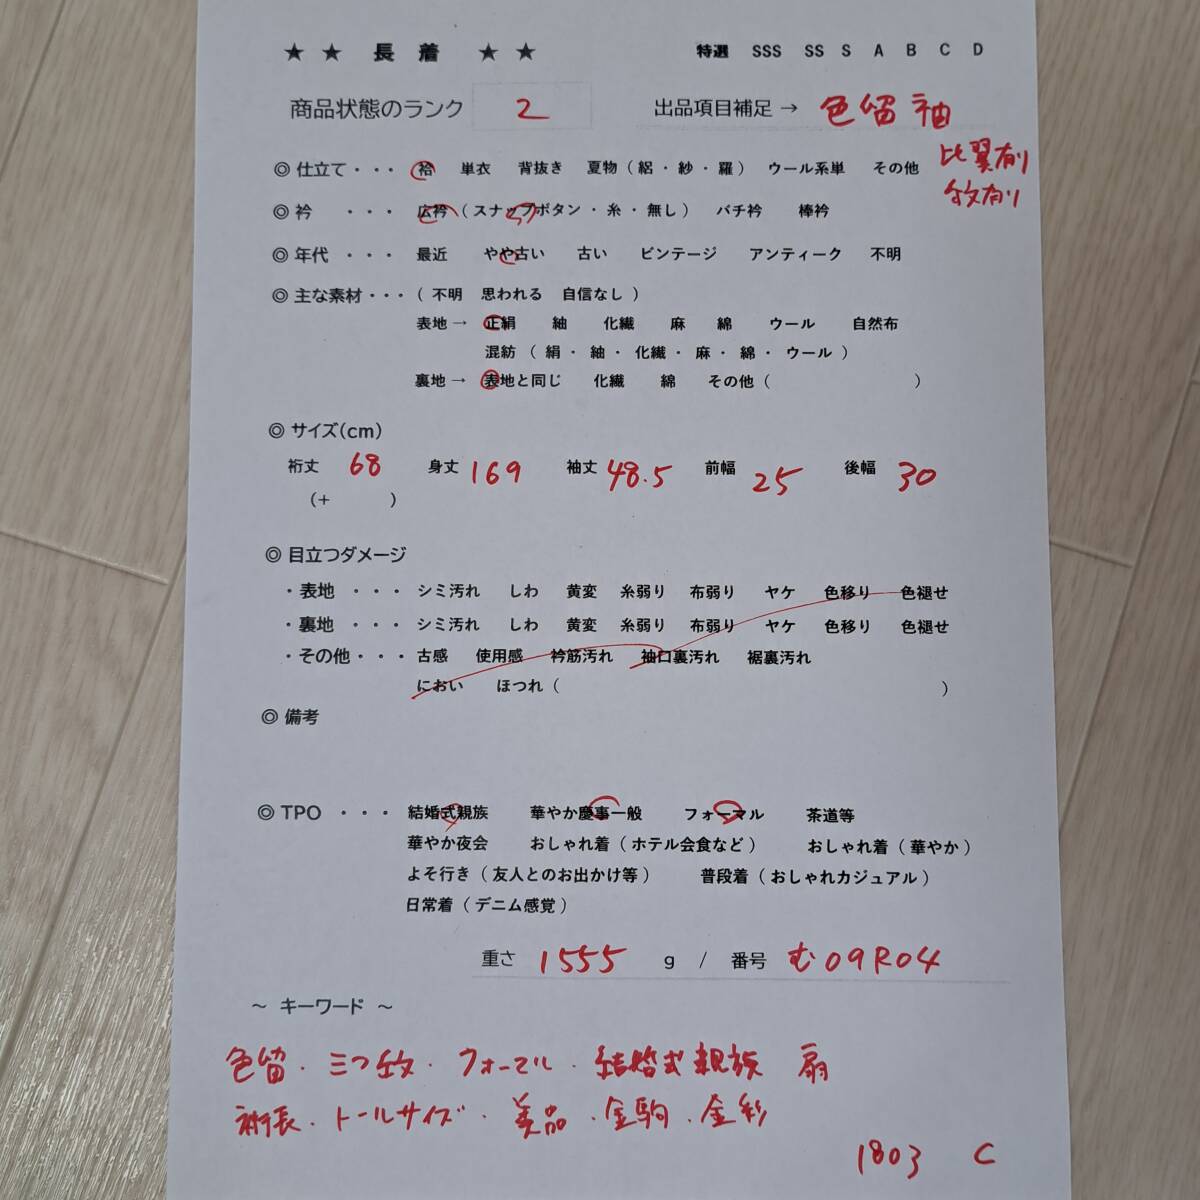 ★ ★ 長 着 ★ ★ 特選 SSS SS S A B C D
商品状態のランク 2 出品項目補足 → 色留袖
◎ 仕立て ・・・ 袷 単衣 背抜き 夏物 ( 絽 ・ 紗 ・ 羅 ) ウール系単 その他 比翼有り
紋有り
◎ 衿 ・・・ 広衿 ( スナップボタン ・ 糸 ・ 無し ) バチ衿 棒衿
◎ 年代 ・・・ 最近 やや古い 古い ビンテージ アンティーク 不明
◎ 主な素材 ・・・ ( 不明 思われる 自信なし )
表地 → 正絹 紬 化繊 麻 綿 ウール 自然布
混紡 ( 絹 ・ 紬 ・ 化繊 ・ 麻 ・ 綿 ・ ウール )
裏地 → 表地と同じ 化繊 綿 その他 ( )
◎ サイズ(cm)
裄丈 68 身丈 169 袖丈 48.5 前幅 25 後幅 30
(+ )
◎ 目立つダメージ
・ 表地 ・・・ シミ汚れ しわ 黄変 糸弱り 布弱り ヤケ 色移り 色褪せ
・ 裏地 ・・・ シミ汚れ しわ 黄変 糸弱り 布弱り ヤケ 色移り 色褪せ
・ その他 ・・・ 古感 使用感 衿筋汚れ 袖口裏汚れ 裾裏汚れ
におい ほつれ ( )
◎ 備考
◎ TPO ・・・ 結婚式親族 華やか慶事一般 フォーマル 茶道等
華やか夜会 おしゃれ着 ( ホテル会食など ) おしゃれ着 ( 華やか )
よそ行き ( 友人とのお出かけ等 ) 普段着 ( おしゃれカジュアル )
日常着 ( デニム感覚 )
重さ 1555 g / 番号 む09R04
～ キーワード ～
色留・三つ紋・フォーマル・結婚式親族 扇
裄長・トールサイズ・美品・金駒・金彩
1803 C